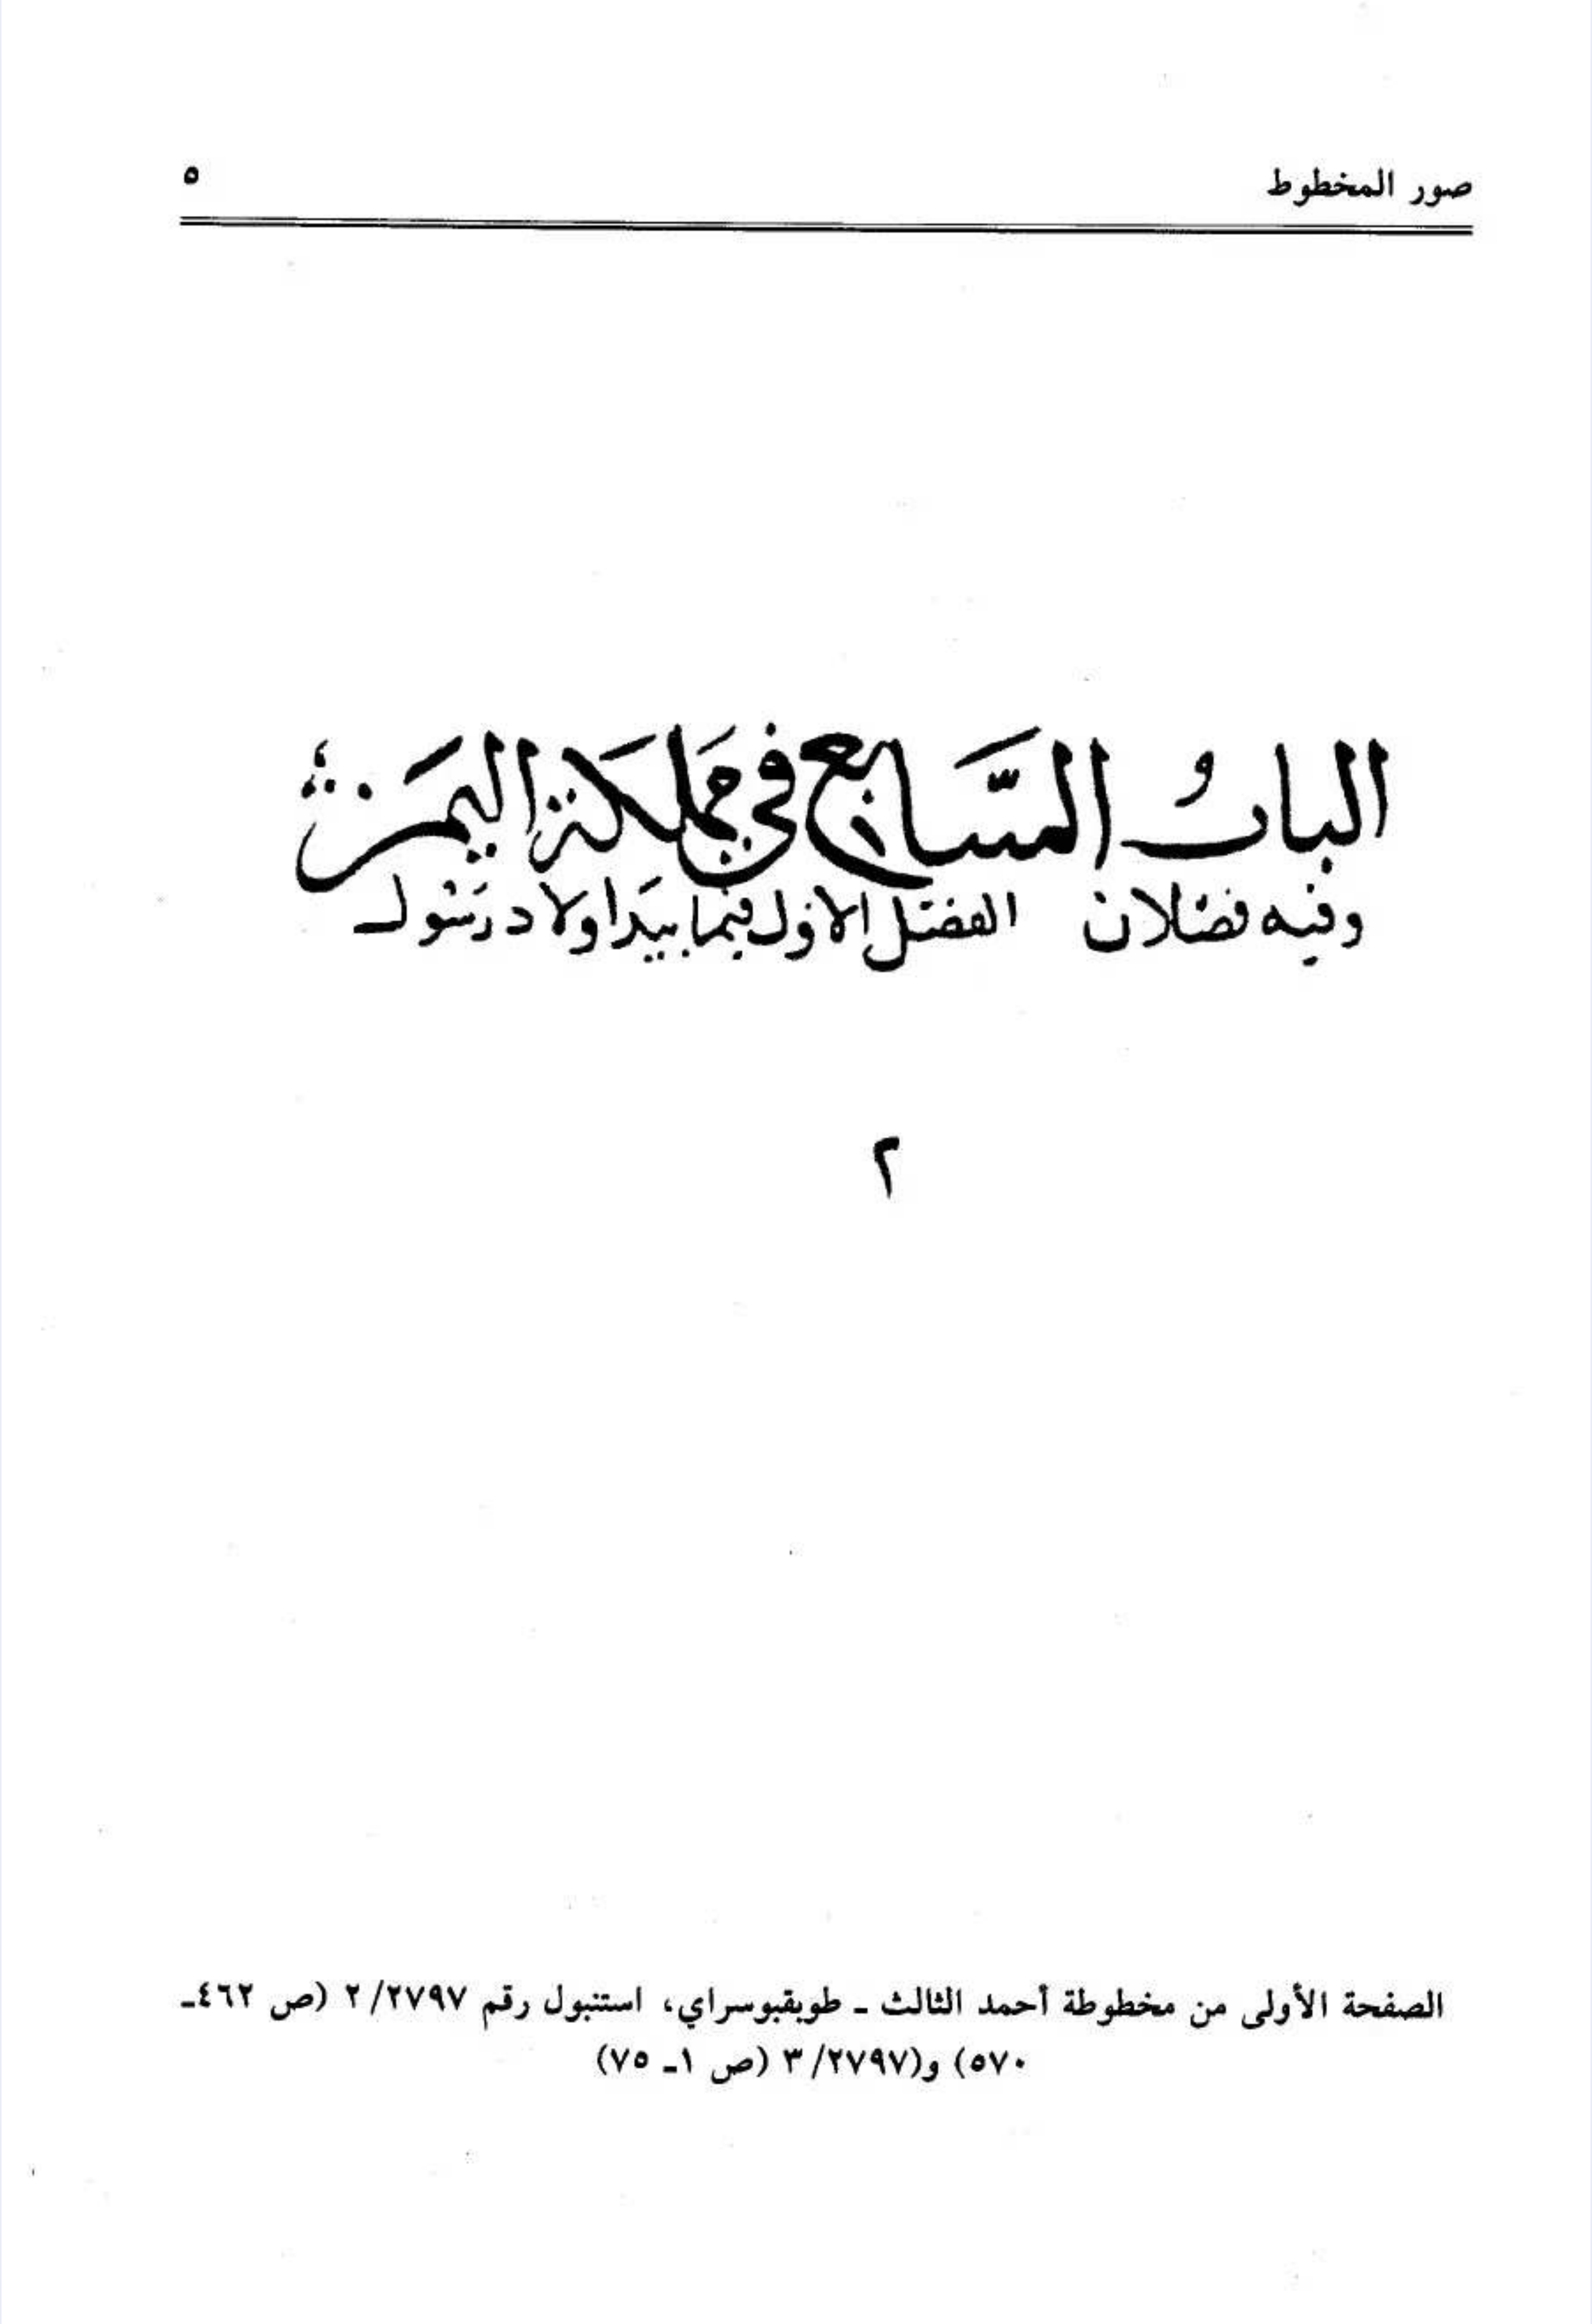 صور المخطوط ٥
البابُ السَّابع في مَملَكة اليَمن
وفيه فصلان الفصل الأول فيما بيد اولاد رسَول
٢
الصفحة الأولى من مخطوطة أحمد الثالث ـ طوبقبوسراي، استنبول رقم ٢/٢٧٩٧ (ص ٤٦٢ـ
٥٧٠) و(٣/٢٧٩٧ (ص ١ـ ٧٥)